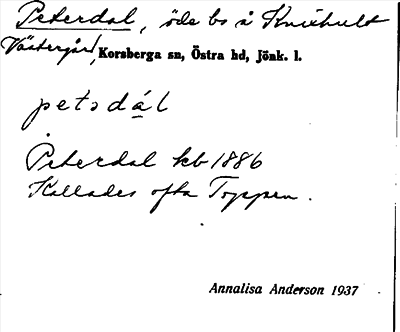 Peterdal, öde bs å Knixhult
Västergård, Korsberga sn, Östra hd, Jönk. l.
petədál
Peterdal kb 1886
Kallades ofta Toppen.
Annalisa Anderson 1937